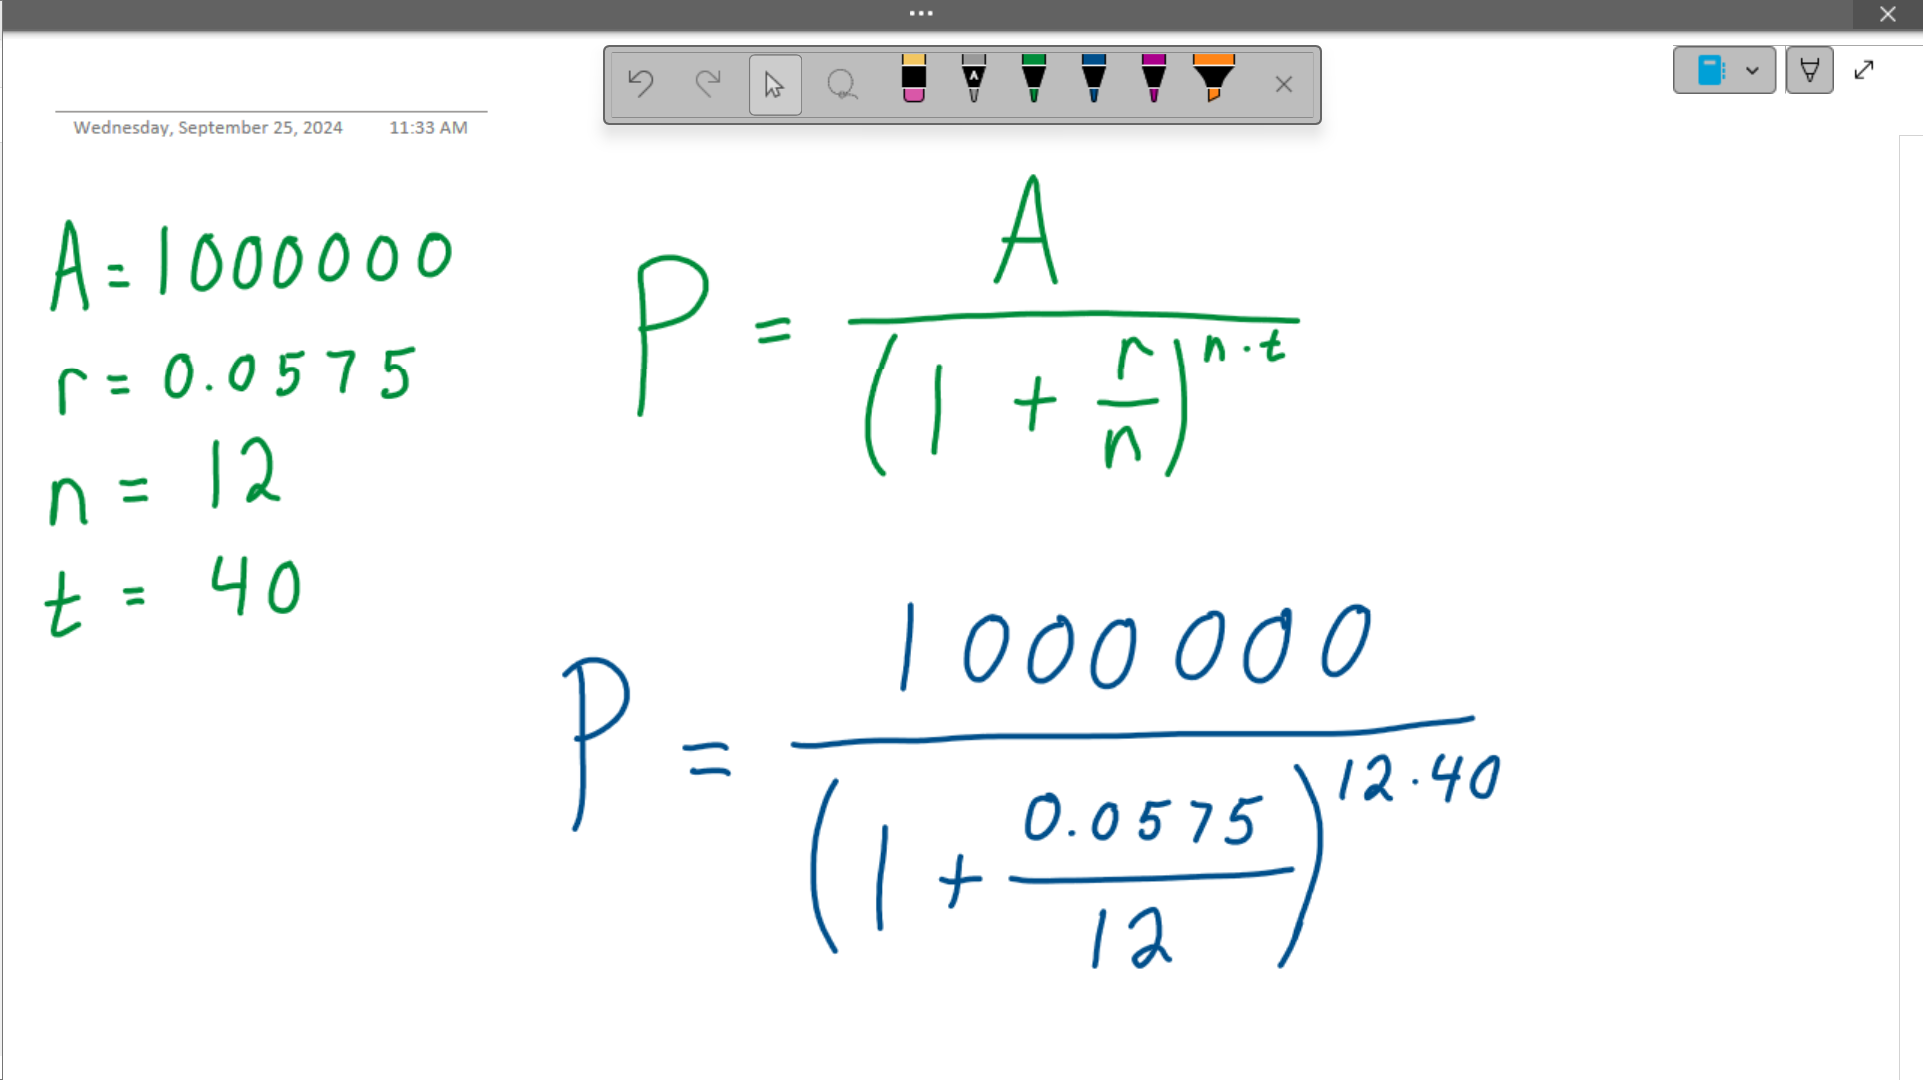 Wednesday, September 25, 2024 11:33 AM
A = 1000000
r = 0.0575
n = 12
t = 40
P = A / (1 + r/n)^n·t
P = 1000000 / (1 + 0.0575/12)^12·40